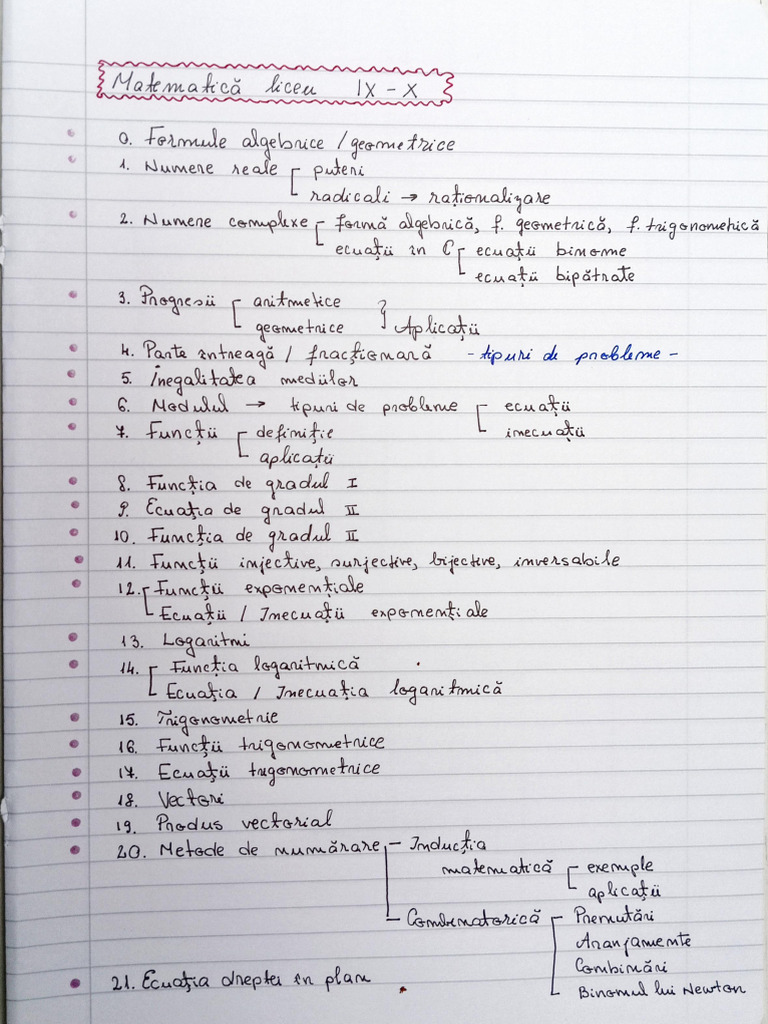 Matematică liceu IX - X
0. Formule algebrice / geometrice
1. Numere reale puteri
radicali → raționalizare
2. Numere complexe formă algebrică, f. geometrică, f. trigonometrică
ecuații în C ecuații binome
ecuații bipătrate
3. Progresii aritmetice
geometrice } Aplicații
4. Parte întreagă / fracționară - tipuri de probleme -
5. Inegalitatea mediilor
6. Modulul → tipuri de probleme ecuații
7. Funcții definiție inecuații
aplicații
8. Funcția de gradul I
9. Ecuația de gradul II
10. Funcția de gradul II
11. Funcții injective, surjective, bijective, inversabile
12. Funcții exponențiale
Ecuații / Inecuații exponențiale
13. Logaritmi
14. Funcția logaritmică
Ecuația / Inecuația logaritmică
15. Trigonometrie
16. Funcții trigonometrice
17. Ecuații trigonometrice
18. Vectori
19. Produs vectorial
20. Metode de numărare - Inducția
matematică exemple
aplicații
Combinatorică Premutări
Aranjamente
Combinări
21. Ecuația dreptei în plan Binomul lui Newton